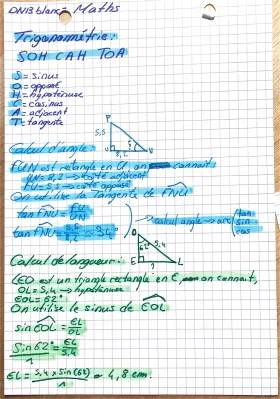 DNB blanc - Maths
Trigonométrie:
SOH CAH TOA
S = sinus
O = opposé
H = hypoténuse
C = cosinus
A = adjacent
T = tangente
Calcul d'angle:
FUN est rectangle en U, on connait
UN = 8,2 → côté adjacent
FU = 5,5 → côté opposé
On utilise la tangente de FNU
tan FNU = FU/UN
tan FNU = 5,5/8,2
calcul angle → arc (tan sin cos
F
5,5
U 8,2 N
Calcul de longueur:
LEO est un triangle rectangle en E, on connait,
OL = 5,4 → hypoténuse
EOL = 62°
On utilise le sinus de EOL
sin EOL = EL/OL
Sin 62°/1 = EL/5,4
EL = 5,4 x sin(62)/1 ≈ 4,8 cm.
O
62° 5,4
E ? L